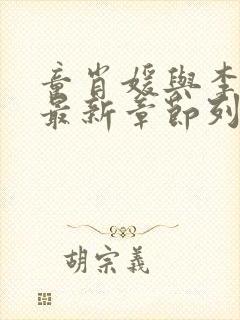 童肖媛與李
最新章節列
胡宗義